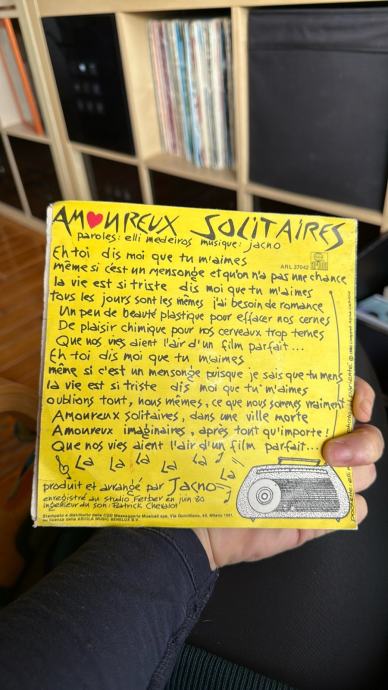 AMOUREUX SOLITAIRES
paroles: elli medeiros musique: jacno
Eh toi dis moi que tu m'aimes
ARL 37042
même si c'est un mensonge et qu'on n'a pas une chance
la vie est si triste dis moi que tu m'aimes
tous les jours sont les mêmes j'ai besoin de romance
Un peu de beauté plastique pour effacer nos cernes
De plaisir chimique pour nos cerveaux trop ternes
Que nos vies aient l'air d'un film parfait...
Eh toi dis moi que tu m'aimes
même si c'est un mensonge puisque je sais que tu mens
la vie est si triste dis moi que tu m'aimes
oublions tout, nous mêmes, ce que nous sommes vraiment
Amoureux solitaires, dans une ville morte
Amoureux imaginaires, après tout qu'importe!
Que nos vies aient l'air d'un film parfait...
La La La La La La
produit et arrangé par Jacno
enregistré au studio Ferber en juin 80
ingénieur du son: Patrick Chevalot
Stampato e distribuito dalla CGD Messaggerie Musicali spa, Via Quintiliano, 40, Milano 1981,
su licenza della ARIOLA MUSIC BENELUX B.V.